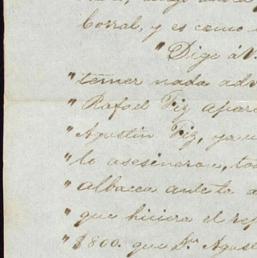 Corral, y es como
" Dige á V.
temer nada adv
" Rafael Fiz apare
" Agustin Fiz, ya
" lo asesinaran, to
" albacea ante la
" que hiciera el rep
" $800. que Dn Agus